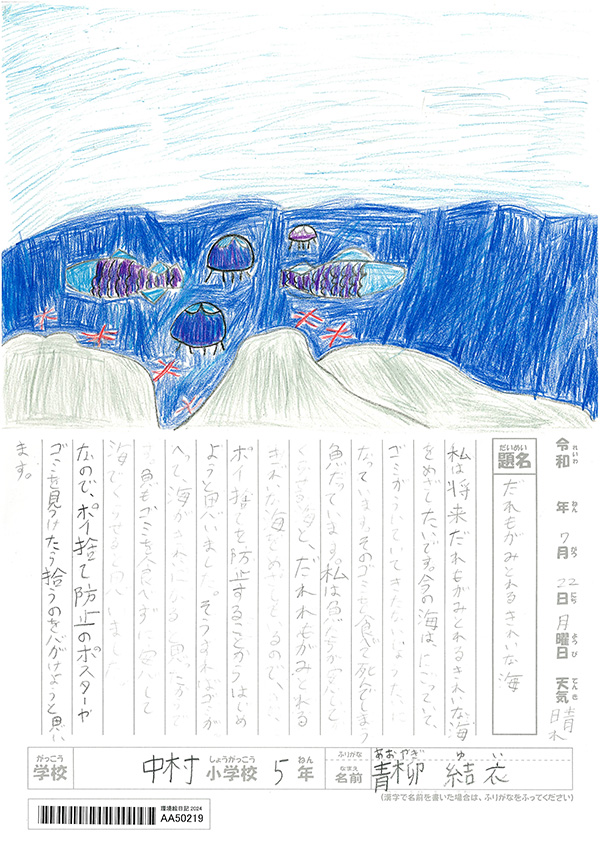 令和 年 7月 22日 月曜日 天気 晴れ
れいわ ねん がつ にち ようび てんき
題名
だいめい
だれもがみとれるきれいな海
私は将来だれもがみとれるきれいな海
をめざしたいです。今の海は、にごっていて、
ゴミがういていてきたないいなりみたいに
なっています。そのゴミを食べ死んでしまう
魚だっています。私は魚たちが安心して
せる海と、だれもがみとれる
きれいな海をめざしているので、
ポイ捨てを防止することからはじめ
ようと思いました。そうすればゴミが
へって海がきれいになると思ったからで
す。魚もゴミを食べずに安心して
海でくらせると思いました。
なので、ポイ捨て防止のポスターや
ゴミを見つけたら拾うのを心がけようと思い
ます。
がっこう
学校
中村 小学校 5年
しょうがっこう ねん
ふりがな あおやぎ ゆい
なまえ
名前 青柳 結衣
(漢字で名前を書いた場合は、ふりがなをふってください)
環境絵日記 2024
AA50219